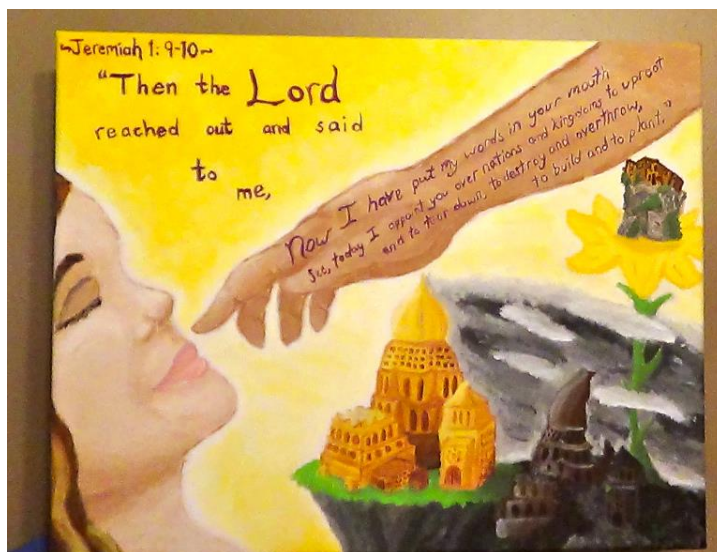 ~Jeremiah 1:9-10~
"Then the Lord
reached out and said
to
me,
Now I have put my words in your mouth
See, today I appoint you over nations and kingdoms to uproot
and to tear down, to destroy and overthrow,
to build and to plant."